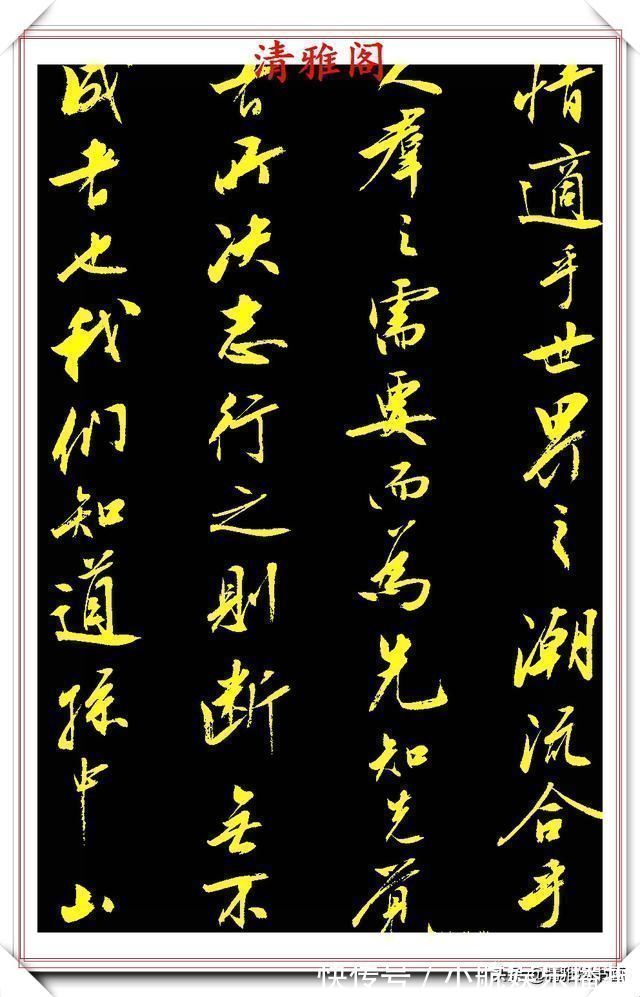 清雅阁
情適乎世界之潮流合乎
人群之需要而為先知先覚
者所决志行之則断无不
成者也我们知道孫中山
快传号/小